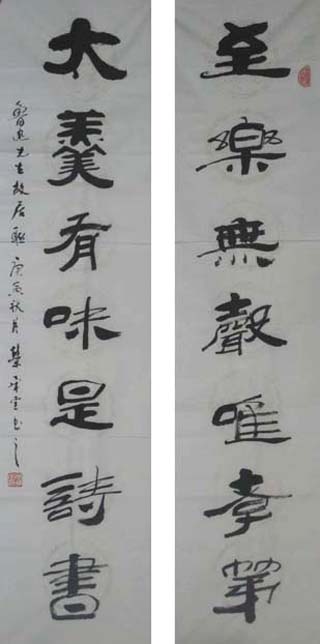 至樂無聲唯孝弟
太羹有味是詩書
魯迅先生故居聯 庚寅秋月